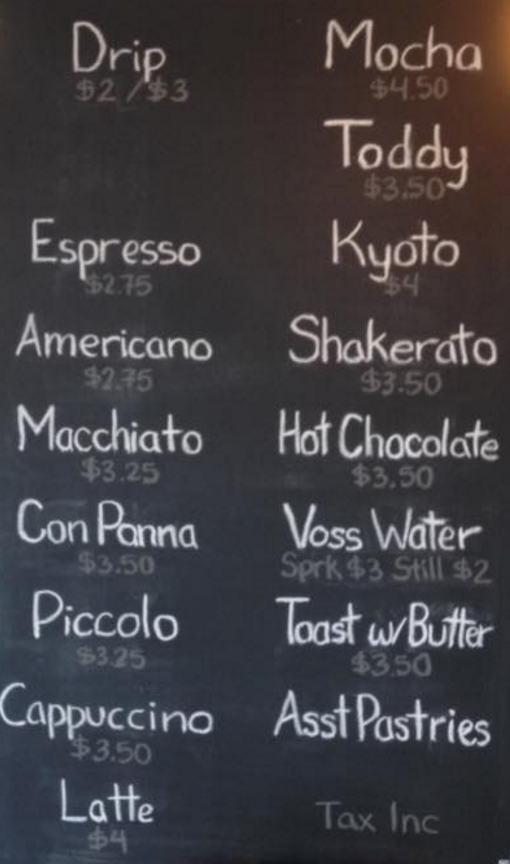 Drip
$2 / $3
Espresso
$2.75
Americano
$2.75
Macchiato
$3.25
Con Panna
$3.50
Piccolo
$3.25
Cappuccino
$3.50
Latte
$4
Mocha
$4.50
Toddy
$3.50
Kyoto
$4
Shakerato
$3.50
Hot Chocolate
$3.50
Voss Water
Sprk $3 Still $2
Toast w/ Butter
$3.50
Asst Pastries
Tax Inc